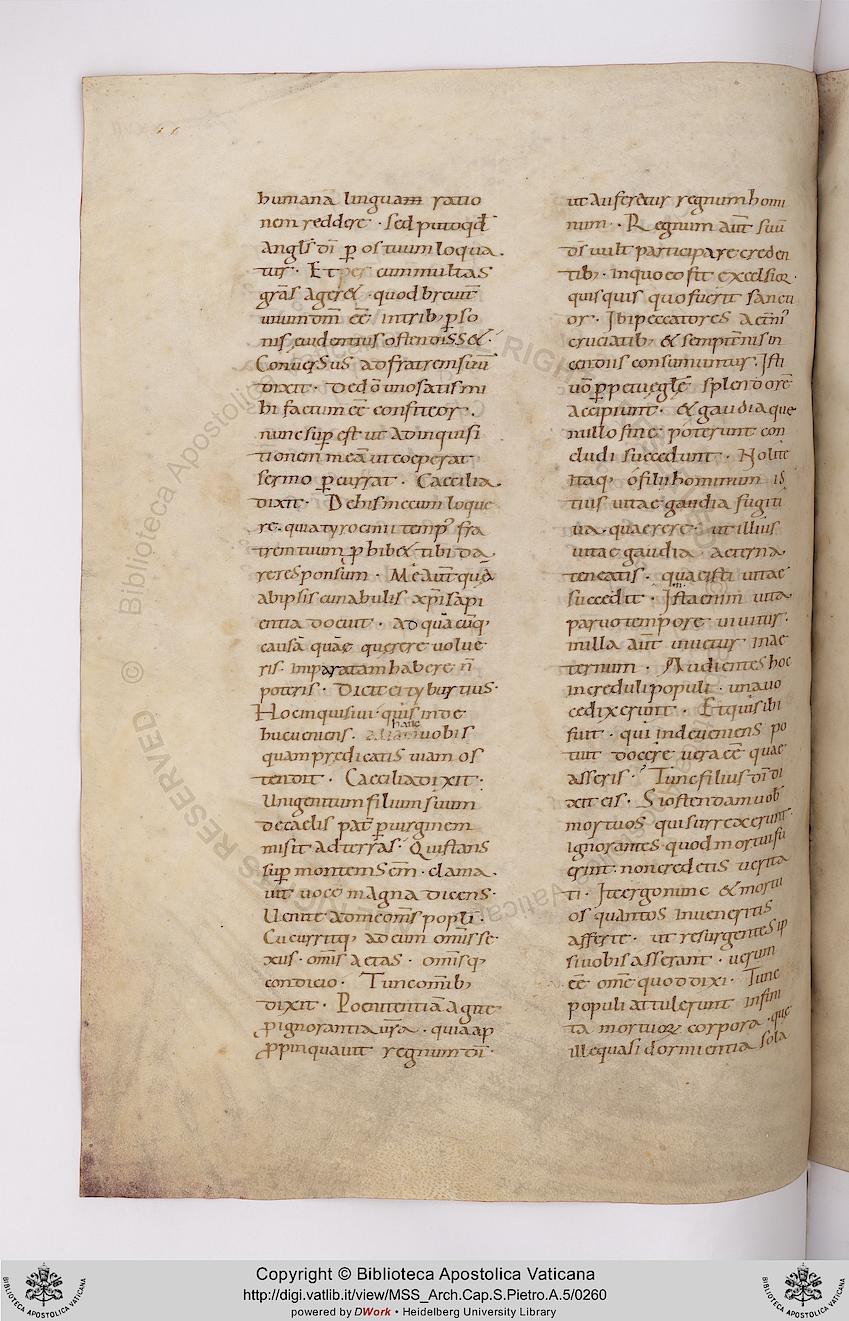 humana linguam ratio
nem reddere · sed puto qđ
angl's dī ꝑ os tuum loqua
tur · Et cum multas
grās ageret · quod breuit̄
unum dm̄ eē in trib; ꝑso
nis euidentius ostendisset ·
Conuersus ad fratrem suū
dixit · Deo uno satis mi
hi factum eē confiteor ·
nunc suꝑest ut ad inquisi
tionem meā ut coeperat
sermo ꝑcurrat · Caecilia
dixit · De his mecum loque
re · quia tyrocinii temp' fra
trem tuum ꝓhibet tibi da
re responsum · Me aūt quā
ab ipsis cunabulis xp̄i sapi
entia docuit · ad quācūq;
causā quae querere uolue
ris imparatam habere n̄
poteris · Dicit ei tyburtius ·
Hoc inquisiui · quis inde
huc ueniens · hanc uobis
quam predicatis uiam os
tendit · Caecilia dixit ·
Unigenitum filium suum
de caelis pat̄ ꝑ uirginem
misit ad terras · Qui stans
suꝑ montem sc̄m · clama
uit uoce magna dicens ·
Uenite ad me om̄s popli ·
Cucurritq; ad eum om̄is se
xus · om̄is aetas · om̄isq;
condicio · Tunc om̄ib;
dixit · Poenitentiā agite
ꝓ ignorantia ur̄a · quia ap
ꝓpinquauit regnum dī ·
ut auferetur regnum homi
num · Regnum aūt suū
ds̄ uult participare creden
tib; · in quo eo fit excelsior ·
quisquis quo fuerit sancti
or · Ibi peccatores aet̄ni'
cruciatib; & sempit̄nis in
cendiis consumuntur · Isti
uō ꝑpetuę glę splendorē
accipiunt · & gaudia que
nullo fine poterunt con
cludi succedunt · Nolite
itaq; o filii hominum is
tius uitae gaudia fugiti
ua · quaerere · ut illius
uitae gaudia aeterna
teneatis · quae isti uitae
succedit · Ista enim uita
paruo tempore uiuitur ·
in illa aūt uiuetur in ae
ternum · Audientes hoc
increduli populi · una uo
ce dixerunt · Et quis ibi
fuit · qui inde ueniens po
tuit docere uera eē quae
asseris · Tunc filius dī di
xit eis · Si ostendam uob
mortuos qui surrexerunt ·
ignorantes quod mortui fu
erint · non credetis uerita
ti · Ite ergo nunc & mortu
os quantos inueneritis
afferte · ut resurgentes ip
si uobis asserant · uerum
eē omē quod dixi · Tunc
populi attulerunt infini
ta mortuorꝫ corpora · que
ille quasi dormientia sola
Copyright © Biblioteca Apostolica Vaticana
http://digi.vatlib.it/view/MSS_Arch.Cap.S.Pietro.A.5/0260
powered by DWork • Heidelberg University Library